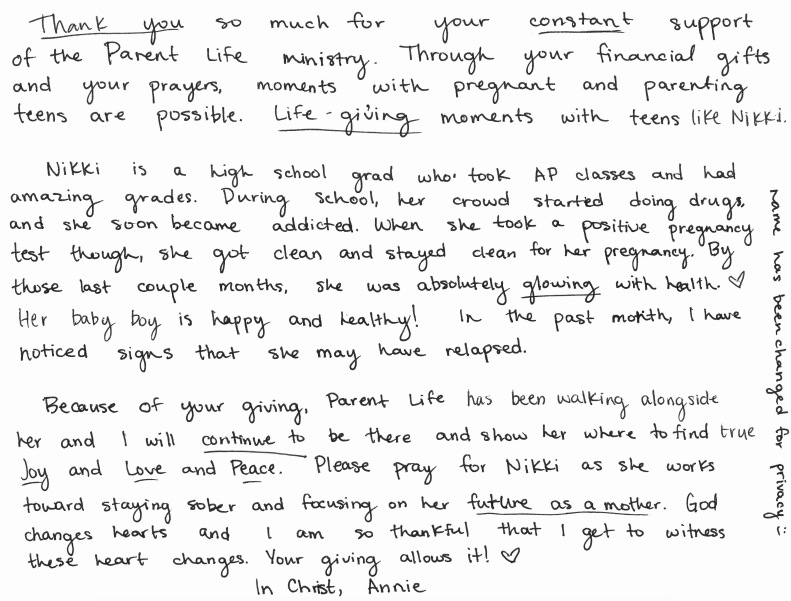 Thank you so much for your constant support
of the Parent Life ministry. Through your financial gifts
and your prayers, moments with pregnant and parenting
teens are possible. Life-giving moments with teens like Nikki.
Nikki is a high school grad who took AP classes and had
amazing grades. During school, her crowd started doing drugs,
and she soon became addicted. When she took a positive pregnancy
test though, she got clean and stayed clean for her pregnancy. By
those last couple months, she was absolutely glowing with health. ♡
Her baby boy is happy and healthy! In the past month, I have
noticed signs that she may have relapsed.
Because of your giving, Parent Life has been walking alongside
her and I will continue to be there and show her where to find true
Joy and Love and Peace. Please pray for Nikki as she works
toward staying sober and focusing on her future as a mother. God
changes hearts and I am so thankful that I get to witness
these heart changes. Your giving allows it! ♡
In Christ, Annie
name has been changed for privacy :)